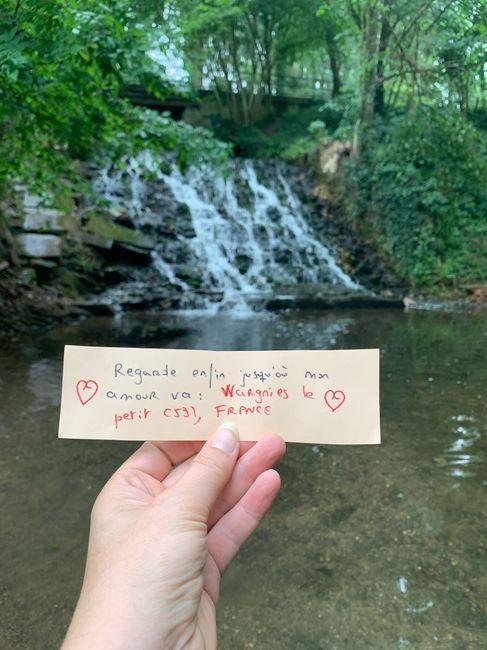 Regarde enfin jusqu'où mon
amour va : Wargnies le
petit (59), FRANCE